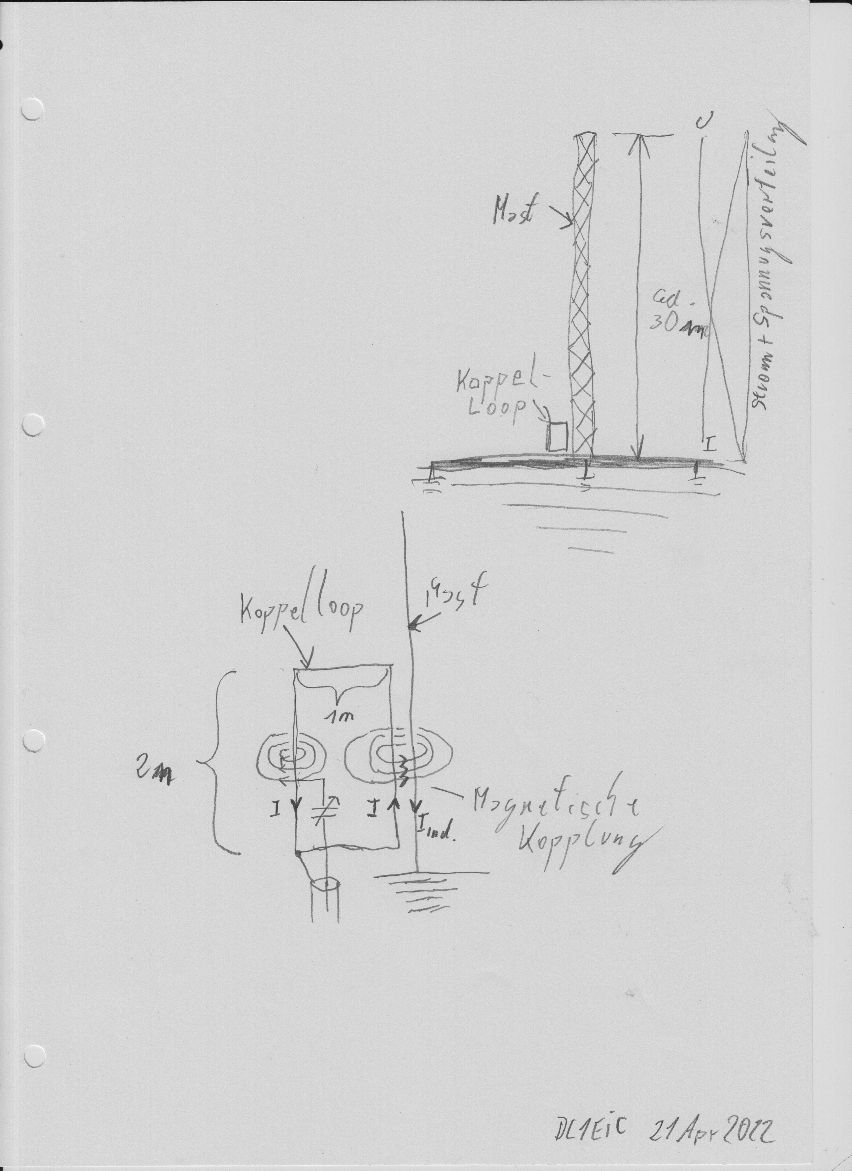 U
Mast
ca.
30 m
Strom + Spannungsverteilung
Koppel-
Loop
I
Koppelloop
Mast
1m
2m
I
I
I ind.
Magnetische
Kopplung
DL1EIC 21 Apr 2022